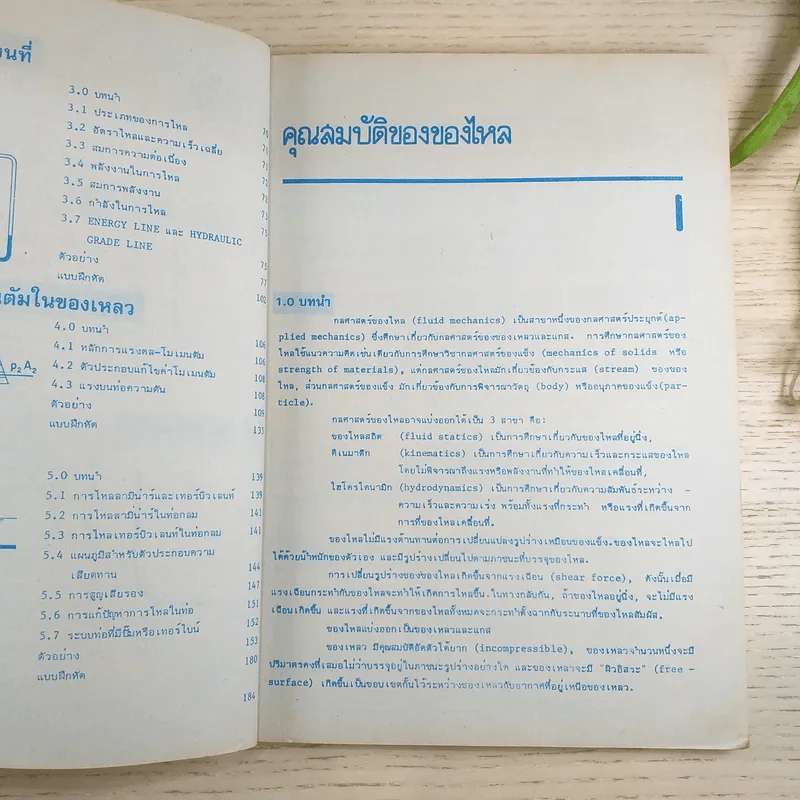 นที่
3.0 บทนำ
3.1 ประเภทของการไหล 70
3.2 อัตราไหลและความเร็วเฉลี่ย 71
3.3 สมการความต่อเนื่อง 71
3.4 พลังงานในการไหล 72
3.5 สมการพลังงาน 72
3.6 กำลังในการไหล 73
3.7 ENERGY LINE และ HYDRAULIC 75
GRADE LINE
ตัวอย่าง 75
แบบฝึกหัด 77
102
ตัมในของเหลว
4.0 บทนำ
4.1 หลักการแรงดล-โมเมนตัม 106
4.2 ตัวประกอบแก้ไขค่าโมเมนตัม 106
4.3 แรงบนท่อความดัน 108
ตัวอย่าง 108
แบบฝึกหัด 109
133
p₂A₂
5.0 บทนำ 139
5.1 การไหลลามินาร์และเทอร์บิวเลนท์ 139
5.2 การไหลลามินาร์ในท่อกลม 141
5.3 การไหลเทอร์บิวเลนท์ในท่อกลม 141
5.4 แผนภูมิสำหรับตัวประกอบความ
เสียดทาน 144
5.5 การสูญเสียรอง 147
5.6 การแก้ปัญหาการไหลในท่อ 151
5.7 ระบบท่อที่มีปั๊มหรือเทอร์ไบน์ 152
ตัวอย่าง 153
แบบฝึกหัด 180
184
คุณสมบัติของของไหล
1
1.0 บทนำ
กลศาสตร์ของไหล (fluid mechanics) เป็นสาขาหนึ่งของกลศาสตร์ประยุกต์(ap-
plied mechanics) ซึ่งศึกษาเกี่ยวกับกลศาสตร์ของของเหลวและแกส. การศึกษากลศาสตร์ของ
ไหลใช้แนวความคิดเช่นเดียวกับการศึกษาวิชากลศาสตร์ของแข็ง (mechanics of solids หรือ
strength of materials), แต่กลศาสตร์ของไหลมักเกี่ยวข้องกับกระแส (stream) ของของ
ไหล, ส่วนกลศาสตร์ของแข็ง มักเกี่ยวข้องกับการพิจารณาวัตถุ (body) หรืออนุภาคของแข็ง(par-
ticle).
กลศาสตร์ของไหลอาจแบ่งออกได้เป็น 3 สาขา คือ:
ของไหลสถิต (fluid statics) เป็นการศึกษาเกี่ยวกับของไหลที่อยู่นิ่ง,
คิเนมาติก (kinematics) เป็นการศึกษาเกี่ยวกับความเร็วและกระแสของไหล
โดยไม่พิจารณาถึงแรงหรือพลังงานที่ทำให้ของไหลเคลื่อนที่,
ไฮโดรไดนามิก (hydrodynamics) เป็นการศึกษาเกี่ยวกับความสัมพันธ์ระหว่าง -
ความเร็วและความเร่ง พร้อมทั้งแรงที่กระทำ หรือแรงที่เกิดขึ้นจาก
การที่ของไหลเคลื่อนที่.
ของไหลไม่มีแรงต้านทานต่อการเปลี่ยนแปลงรูปร่างเหมือนของแข็ง.ของไหลจะไหลไป
ได้ด้วยน้ำหนักของตัวเอง และมีรูปร่างเปลี่ยนไปตามภาชนะที่บรรจุของไหล.
การเปลี่ยนรูปร่างของของไหลเกิดขึ้นจากแรงเฉือน (shear force), ดังนั้นเมื่อมี
แรงเฉือนกระทำกับของไหลจะทำให้เกิดการไหลขึ้น.ในทางกลับกัน, ถ้าของไหลอยู่นิ่ง, จะไม่มีแรง
เฉือนเกิดขึ้น และแรงที่เกิดขึ้นจากของไหลทั้งหมดจะกระทำตั้งฉากกับระนาบที่ของไหลสัมผัส.
ของไหลแบ่งออกเป็นของเหลวและแกส
ของเหลว มีคุณสมบัติอัดตัวได้ยาก (incompressible), ของเหลวจำนวนหนึ่งจะมี
ปริมาตรคงที่เสมอไม่ว่าบรรจุอยู่ในภาชนะรูปร่างอย่างใด และของเหลวจะมี "ผิวอิสระ" (free -
surface) เกิดขึ้นเป็นขอบเขตกั้นไว้ระหว่างของเหลวกับอากาศที่อยู่เหนือของเหลว.